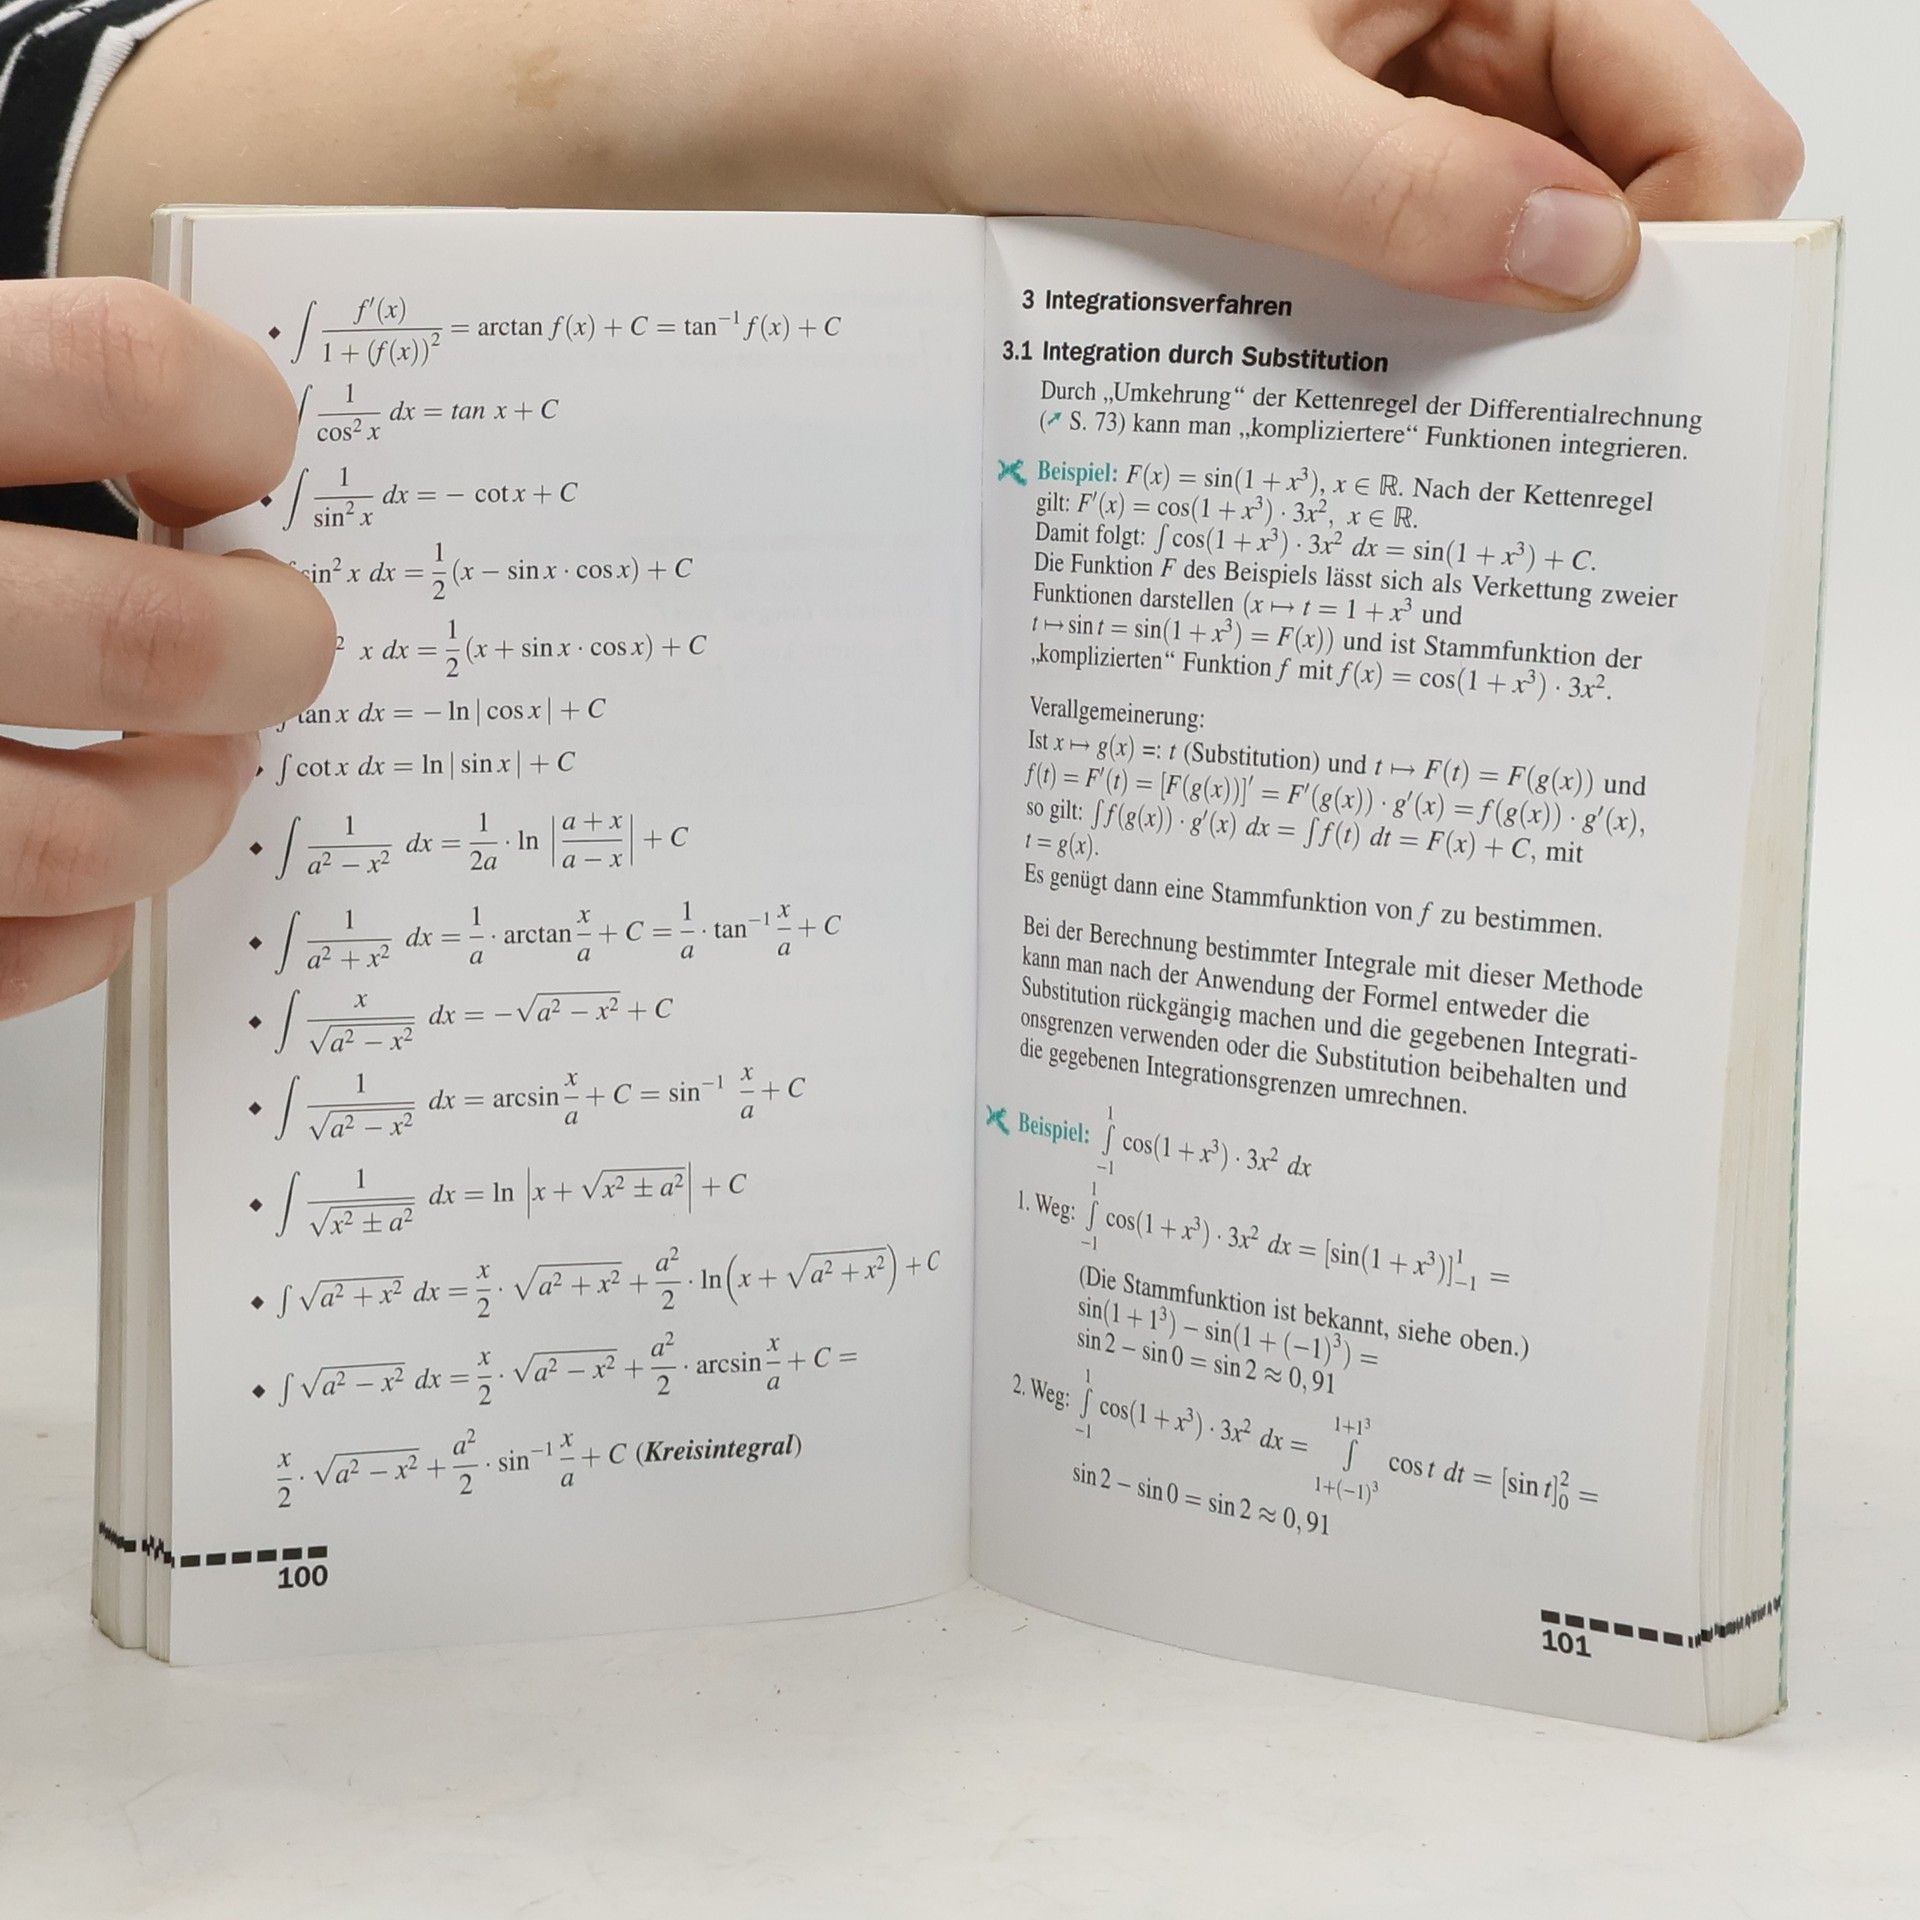 ∫ f′(x) / (1 + (f(x))²) = arctan f(x) + C = tan⁻¹ f(x) + C
∫ 1 / cos² x dx = tan x + C
∫ 1 / sin² x dx = − cot x + C
sin² x dx = 1/2 (x − sin x · cos x) + C
² x dx = 1/2 (x + sin x · cos x) + C
tan x dx = − ln | cos x | + C
∫ cot x dx = ln | sin x | + C
∫ 1 / (a² − x²) dx = 1/2a · ln |(a + x) / (a − x)| + C
∫ 1 / (a² + x²) dx = 1/a · arctan x/a + C = 1/a · tan⁻¹ x/a + C
∫ x / √(a² − x²) dx = −√(a² − x²) + C
∫ 1 / √(a² − x²) dx = arcsin x/a + C = sin⁻¹ x/a + C
∫ 1 / √(x² ± a²) dx = ln |x + √(x² ± a²)| + C
∫ √(a² + x²) dx = x/2 · √(a² + x²) + a²/2 · ln(x + √(a² + x²)) + C
∫ √(a² − x²) dx = x/2 · √(a² − x²) + a²/2 · arcsin x/a + C =
x/2 · √(a² − x²) + a²/2 · sin⁻¹ x/a + C (Kreisintegral)
100
3 Integrationsverfahren
3.1 Integration durch Substitution
Durch „Umkehrung“ der Kettenregel der Differentialrechnung
(↗ S. 73) kann man „kompliziertere“ Funktionen integrieren.
Beispiel: F(x) = sin(1 + x³), x ∈ ℝ. Nach der Kettenregel
gilt: F′(x) = cos(1 + x³) · 3x², x ∈ ℝ.
Damit folgt: ∫ cos(1 + x³) · 3x² dx = sin(1 + x³) + C.
Die Funktion F des Beispiels lässt sich als Verkettung zweier
Funktionen darstellen (x ↦ t = 1 + x³ und
t ↦ sin t = sin(1 + x³) = F(x)) und ist Stammfunktion der
„komplizierten“ Funktion f mit f(x) = cos(1 + x³) · 3x².
Verallgemeinerung:
Ist x ↦ g(x) =: t (Substitution) und t ↦ F(t) = F(g(x)) und
f(t) = F′(t) = [F(g(x))]′ = F′(g(x)) · g′(x) = f(g(x)) · g′(x),
so gilt: ∫ f(g(x)) · g′(x) dx = ∫ f(t) dt = F(x) + C, mit
t = g(x).
Es genügt dann eine Stammfunktion von f zu bestimmen.
Bei der Berechnung bestimmter Integrale mit dieser Methode
kann man nach der Anwendung der Formel entweder die
Substitution rückgängig machen und die gegebenen Integrati-
onsgrenzen verwenden oder die Substitution beibehalten und
die gegebenen Integrationsgrenzen umrechnen.
Beispiel: ∫₋₁¹ cos(1 + x³) · 3x² dx
1. Weg: ∫₋₁¹ cos(1 + x³) · 3x² dx = [sin(1 + x³)]₋₁¹ =
(Die Stammfunktion ist bekannt, siehe oben.)
sin(1 + 1³) − sin(1 + (−1)³) =
sin 2 − sin 0 = sin 2 ≈ 0,91
2. Weg: ∫₋₁¹ cos(1 + x³) · 3x² dx = ∫_{1+(−1)³}^{1+1³} cos t dt = [sin t]₀² =
sin 2 − sin 0 = sin 2 ≈ 0,91
101